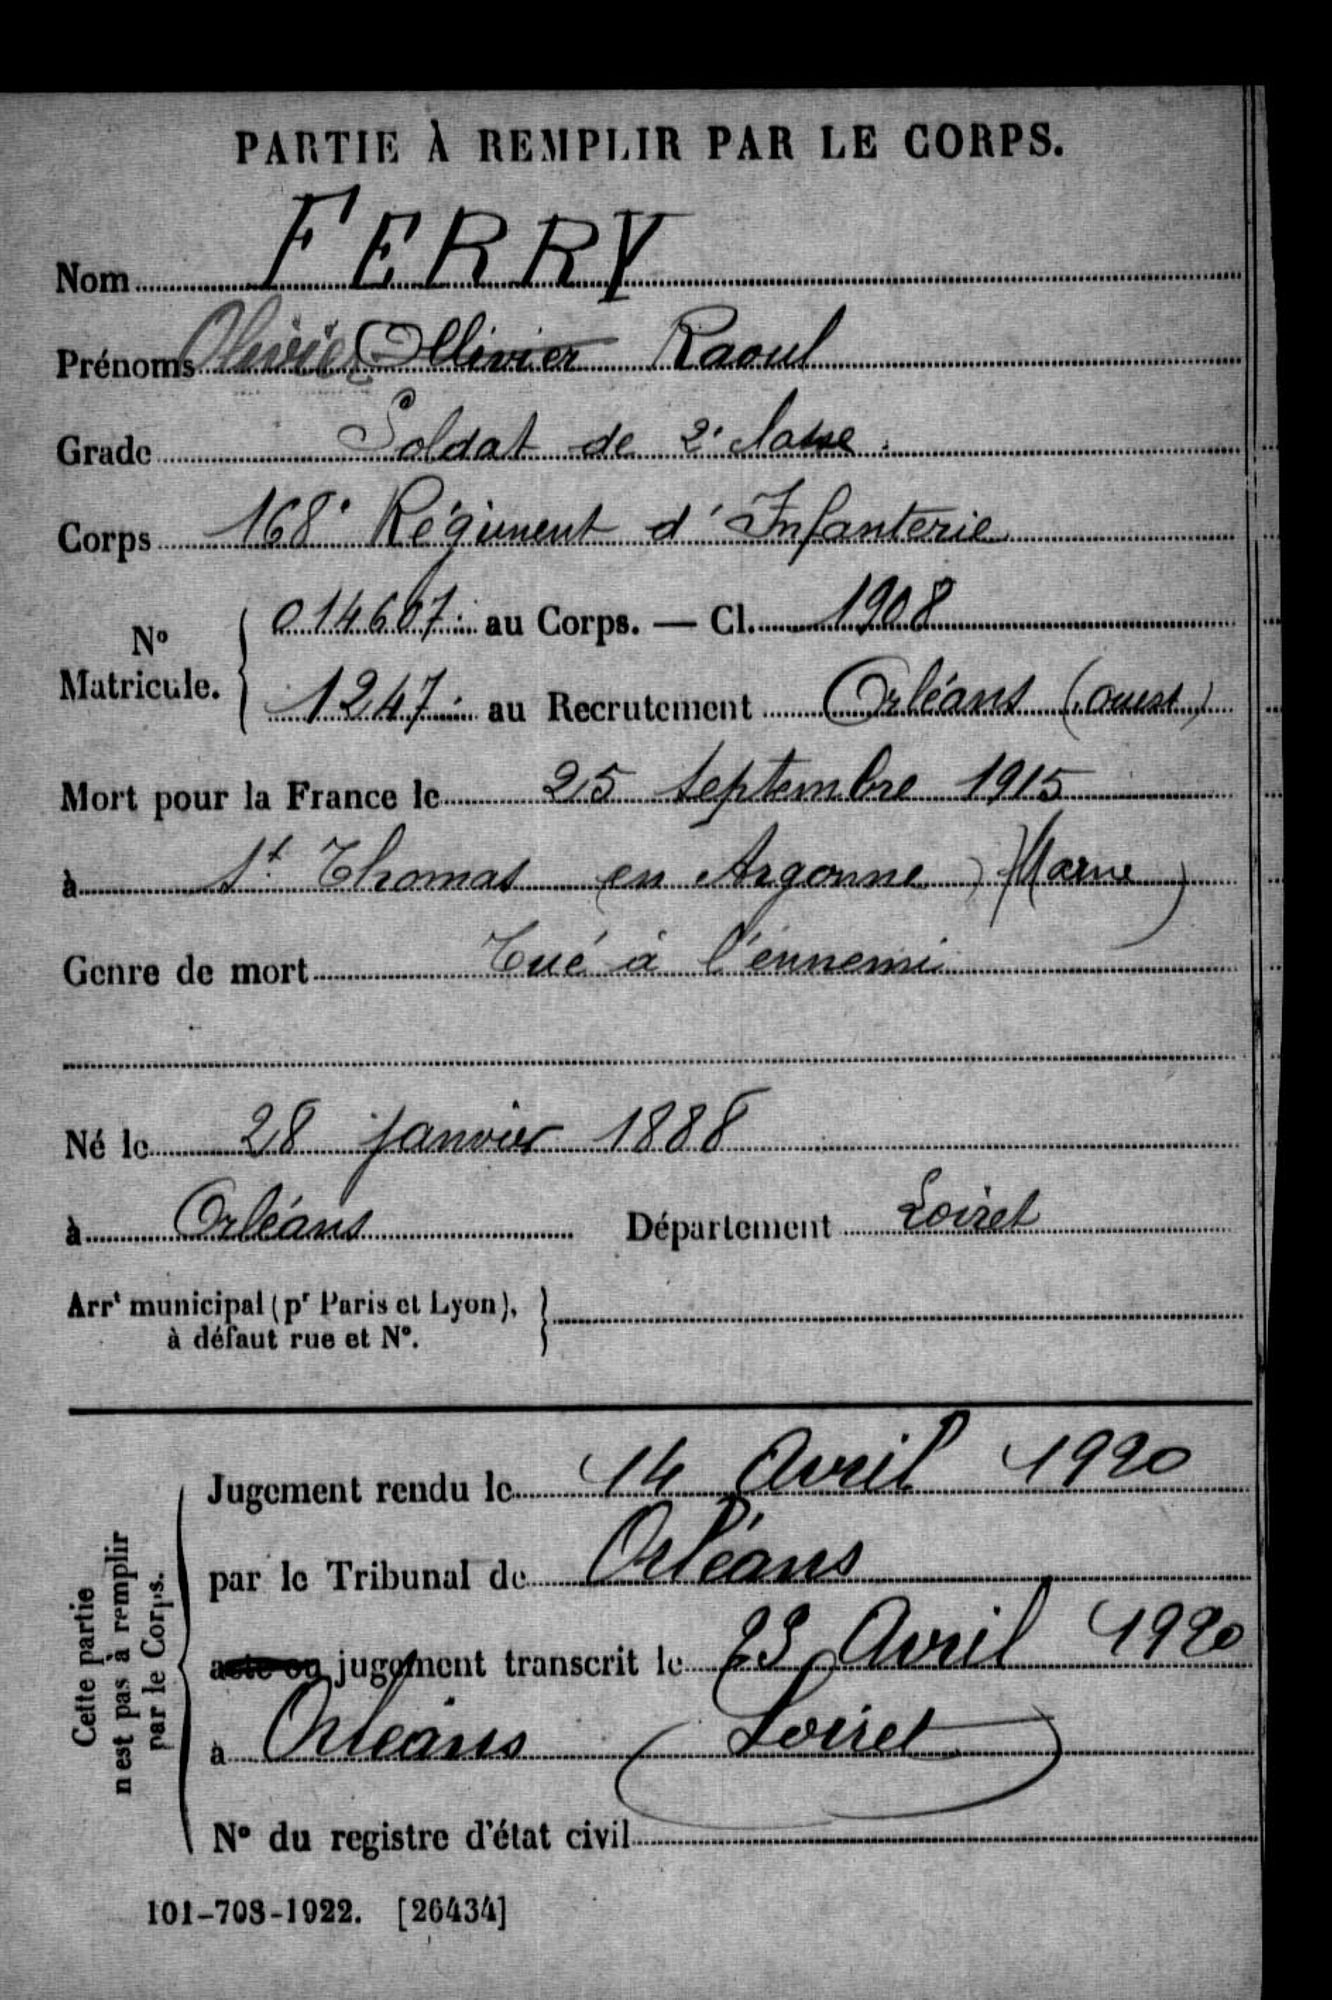 PARTIE À REMPLIR PAR LE CORPS.
Nom FERRY
Prénoms Olivier Ollivier Raoul
Grade Soldat de 2e classe.
Corps 168e Régiment d'Infanterie
No Matricule. { 014607 : au Corps. — Cl. 1908
1247 : au Recrutement Orléans (ouest)
Mort pour la France le 25 septembre 1915
à St. Thomas en Argonne (Marne)
Genre de mort Tué à l'énnemi
Né le 28 janvier 1888
à Orléans Département Loiret
Arrt municipal (pr Paris et Lyon), }
à défaut rue et No.
Cette partie
n'est pas à remplir
par le Corps.
Jugement rendu le 14 Avril 1920
par le Tribunal de Orléans
acte ou jugement transcrit le 23 Avril 1920
à Orléans (Loiret)
No du registre d'état civil
101-708-1922. [26434]